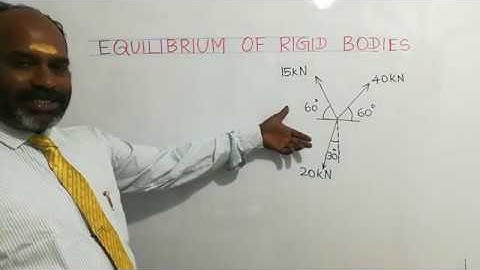 EQUILIBRIUM OF RIGID BODIES
15KN
40KN
60°
60°
30°
20KN